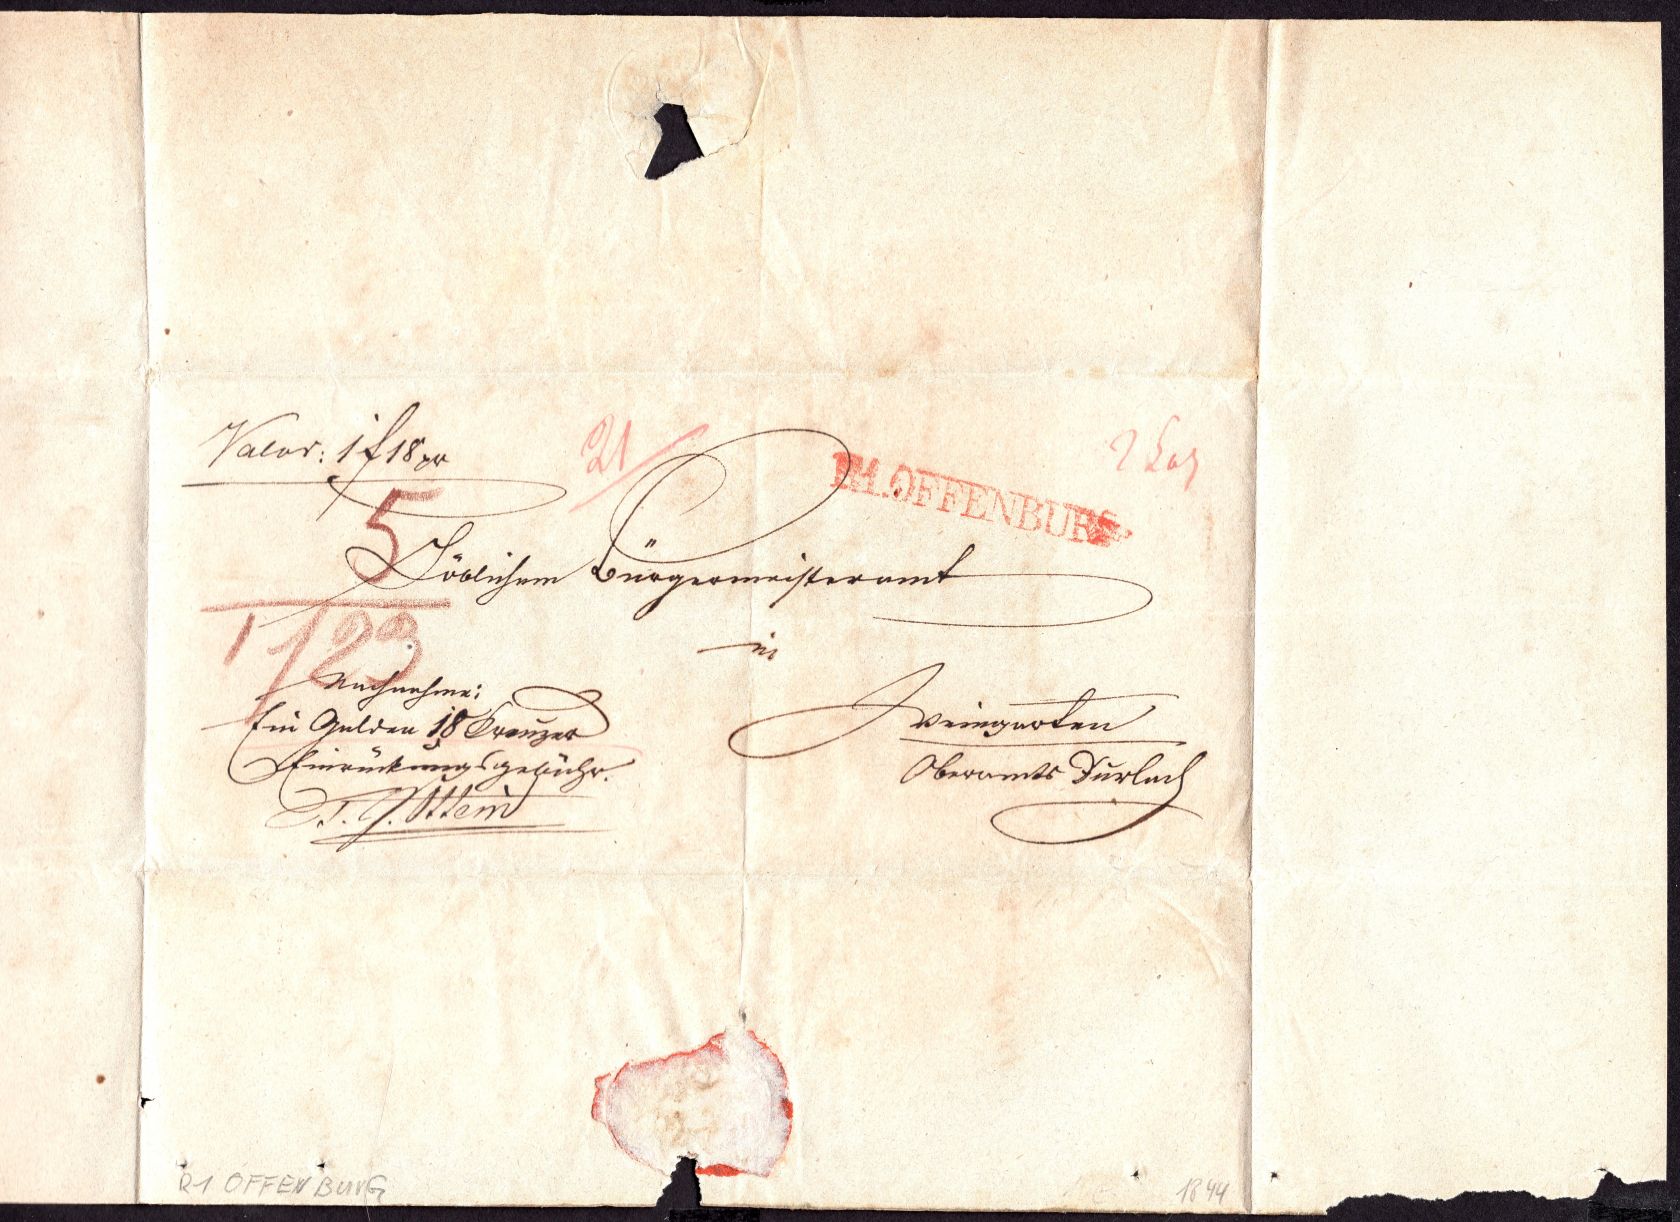 Valor: 1 f 18 xr
21
2 Lot
R1.OFFENBURG.
5
Löblichem Bürgermeisteramt
1 23
in
Nachnahme:
Ein Gulden 18 Kreuzer
Einrückungsgebühr.
Weingarten
Oberamts Durlach
R1 OFFENBURG
1844